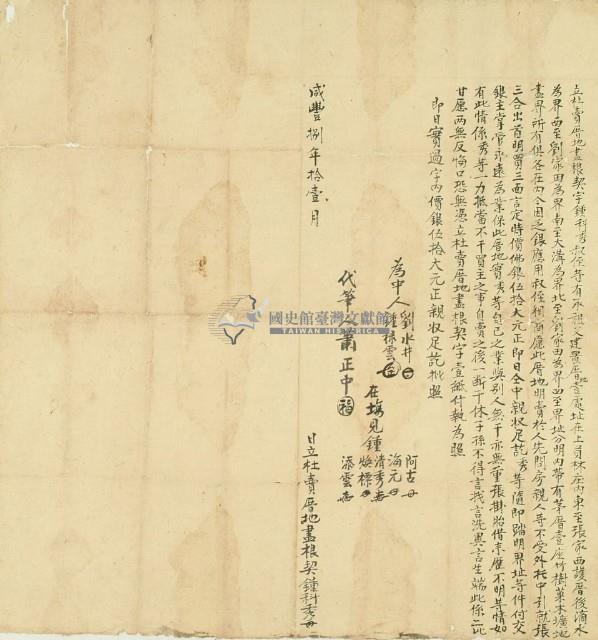 立杜賣厝地盡根契字鍾科秀叔侄等有承祖父建置厝地壹處址在上員林庄內東至張家西護厝後滴水
為界西至劉家田為界南至大溝為界北至劉家田為界四至界址分明內帶有茅厝壹座竹樹菓木壙地
盡界所有俱各在內今因乏銀應用叔侄相商愿此厝地明賣於人先問房親人等不受外托中引就張
三合出首明買三面言定時價佛銀伍拾大元正即日仝中親收足訖秀等隨即踏明界址等件付交
銀主掌管永遠為業保此厝地實秀等自己之業與別人無干亦無重張掛胎借來歷不明等情如
有此情係秀等一力抵當不干買主之事自賣之後一断千休子孫不得言找言洗異言生端此係二比
甘愿兩無反悔口恐無憑立杜賣厝地盡根契字壹紙付執為照
即日實過字內價銀伍拾大元正親收足訖批照
為中人劉水井
鍾祿雲
代筆人蕭正中
在塲見鍾
阿古
海元
清秀
煥標
添雲
咸豐捌年拾壹月
日立杜賣厝地盡根契鍾科秀
國史館臺灣文獻館
TAIWAN HISTORICA